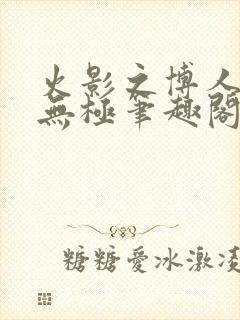 火影之博人
無極筆趣閣
糖糖愛冰激凌